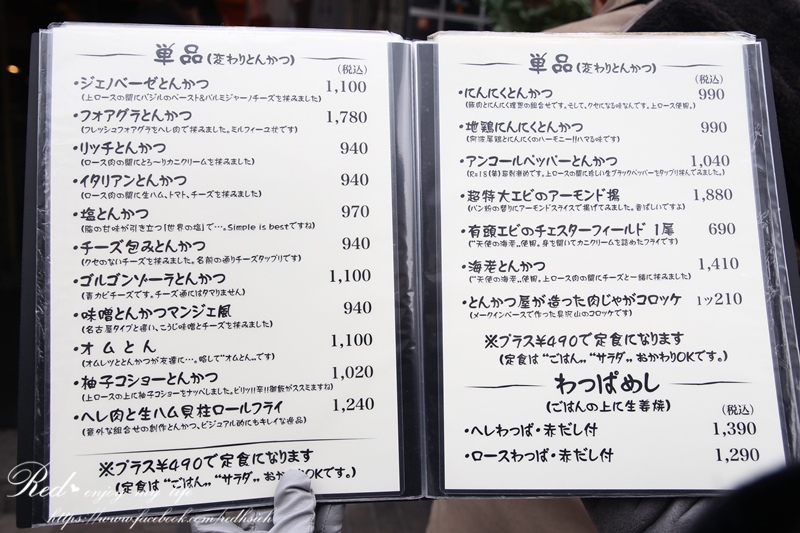 単品(変わりとんかつ)
(税込)
・ジェノベーゼとんかつ 1,100
(上ロースの間にバジルのペースト&パルミジャーノチーズを挟みました)
・フォアグラとんかつ 1,780
(フレッシュフォアグラをヘレ肉で挟みました。ミルフィーユ状です)
・リッチとんかつ 940
(ロース肉の間にとろ〜りカニクリームを挟みました)
・イタリアンとんかつ 940
(ロース肉の間に生ハム、トマト、チーズを挟みました)
・塩とんかつ 970
(脂の甘味が引き立つ「世界の塩」で…。Simple is bestですね)
・チーズ包みとんかつ 940
(クセのないチーズを挟みました。名前の通りチーズタップリです)
・ゴルゴンゾーラとんかつ 1,100
(青カビチーズです。チーズ通にはタマりません)
・味噌とんかつマンジェ風 940
(名古屋タイプと違い、こうじ味噌とチーズを挟みました)
・オムとん 1,100
(オムレツととんかつが友達に…。略して"オムとん"です)
・柚子コショーとんかつ 1,020
(上ロースの上に柚子コショーをナッペしました。ピリッ!!辛!!御飯がススミますね)
・ヘレ肉と生ハム貝柱ロールフライ 1,240
(意外な組合せの創作とんかつ、ビジュアル的にもキレイな逸品)
※プラス¥490で定食になります
(定食は"ごはん""サラダ"おかわりOKです。)
単品(変わりとんかつ)
(税込)
・にんにくとんかつ 990
(豚肉とにんにく理想の組合せです。そして、クセになる味なんです。上ロース使用。)
・地鶏にんにくとんかつ 990
(阿波尾鶏とにんにくのハーモニー!!ハマる味です)
・アンコールペッパーとんかつ 1,040
上ロースの間に珍しい生ブラックペッパーをタップリ挟んでみました。)
・超特大エビのアーモンド揚 1,880
(パン粉の替りにアーモンドスライスで揚げてみました。香ばしいですよ)
・有頭エビのチェスターフィールド 1尾 690
("天使の海老"使用。身を開いてカニクリームを詰めたフライです)
・海老とんかつ 1,410
("天使の海老"使用。上ロース肉の間にチーズと一緒に挟みました)
・とんかつ屋が造った肉じゃがコロッケ 1ッ210
(メークインベースで作った具沢山のコロッケです)
※プラス¥490で定食になります
(定食は"ごはん""サラダ"おかわりOKです。)
わっぱめし
(ごはんの上に生姜焼)
(税込)
・ヘレわっぱ・赤だし付 1,390
・ロースわっぱ・赤だし付 1,290
Red♥ enjoy my life
https://www.facebook.com/redhsieh